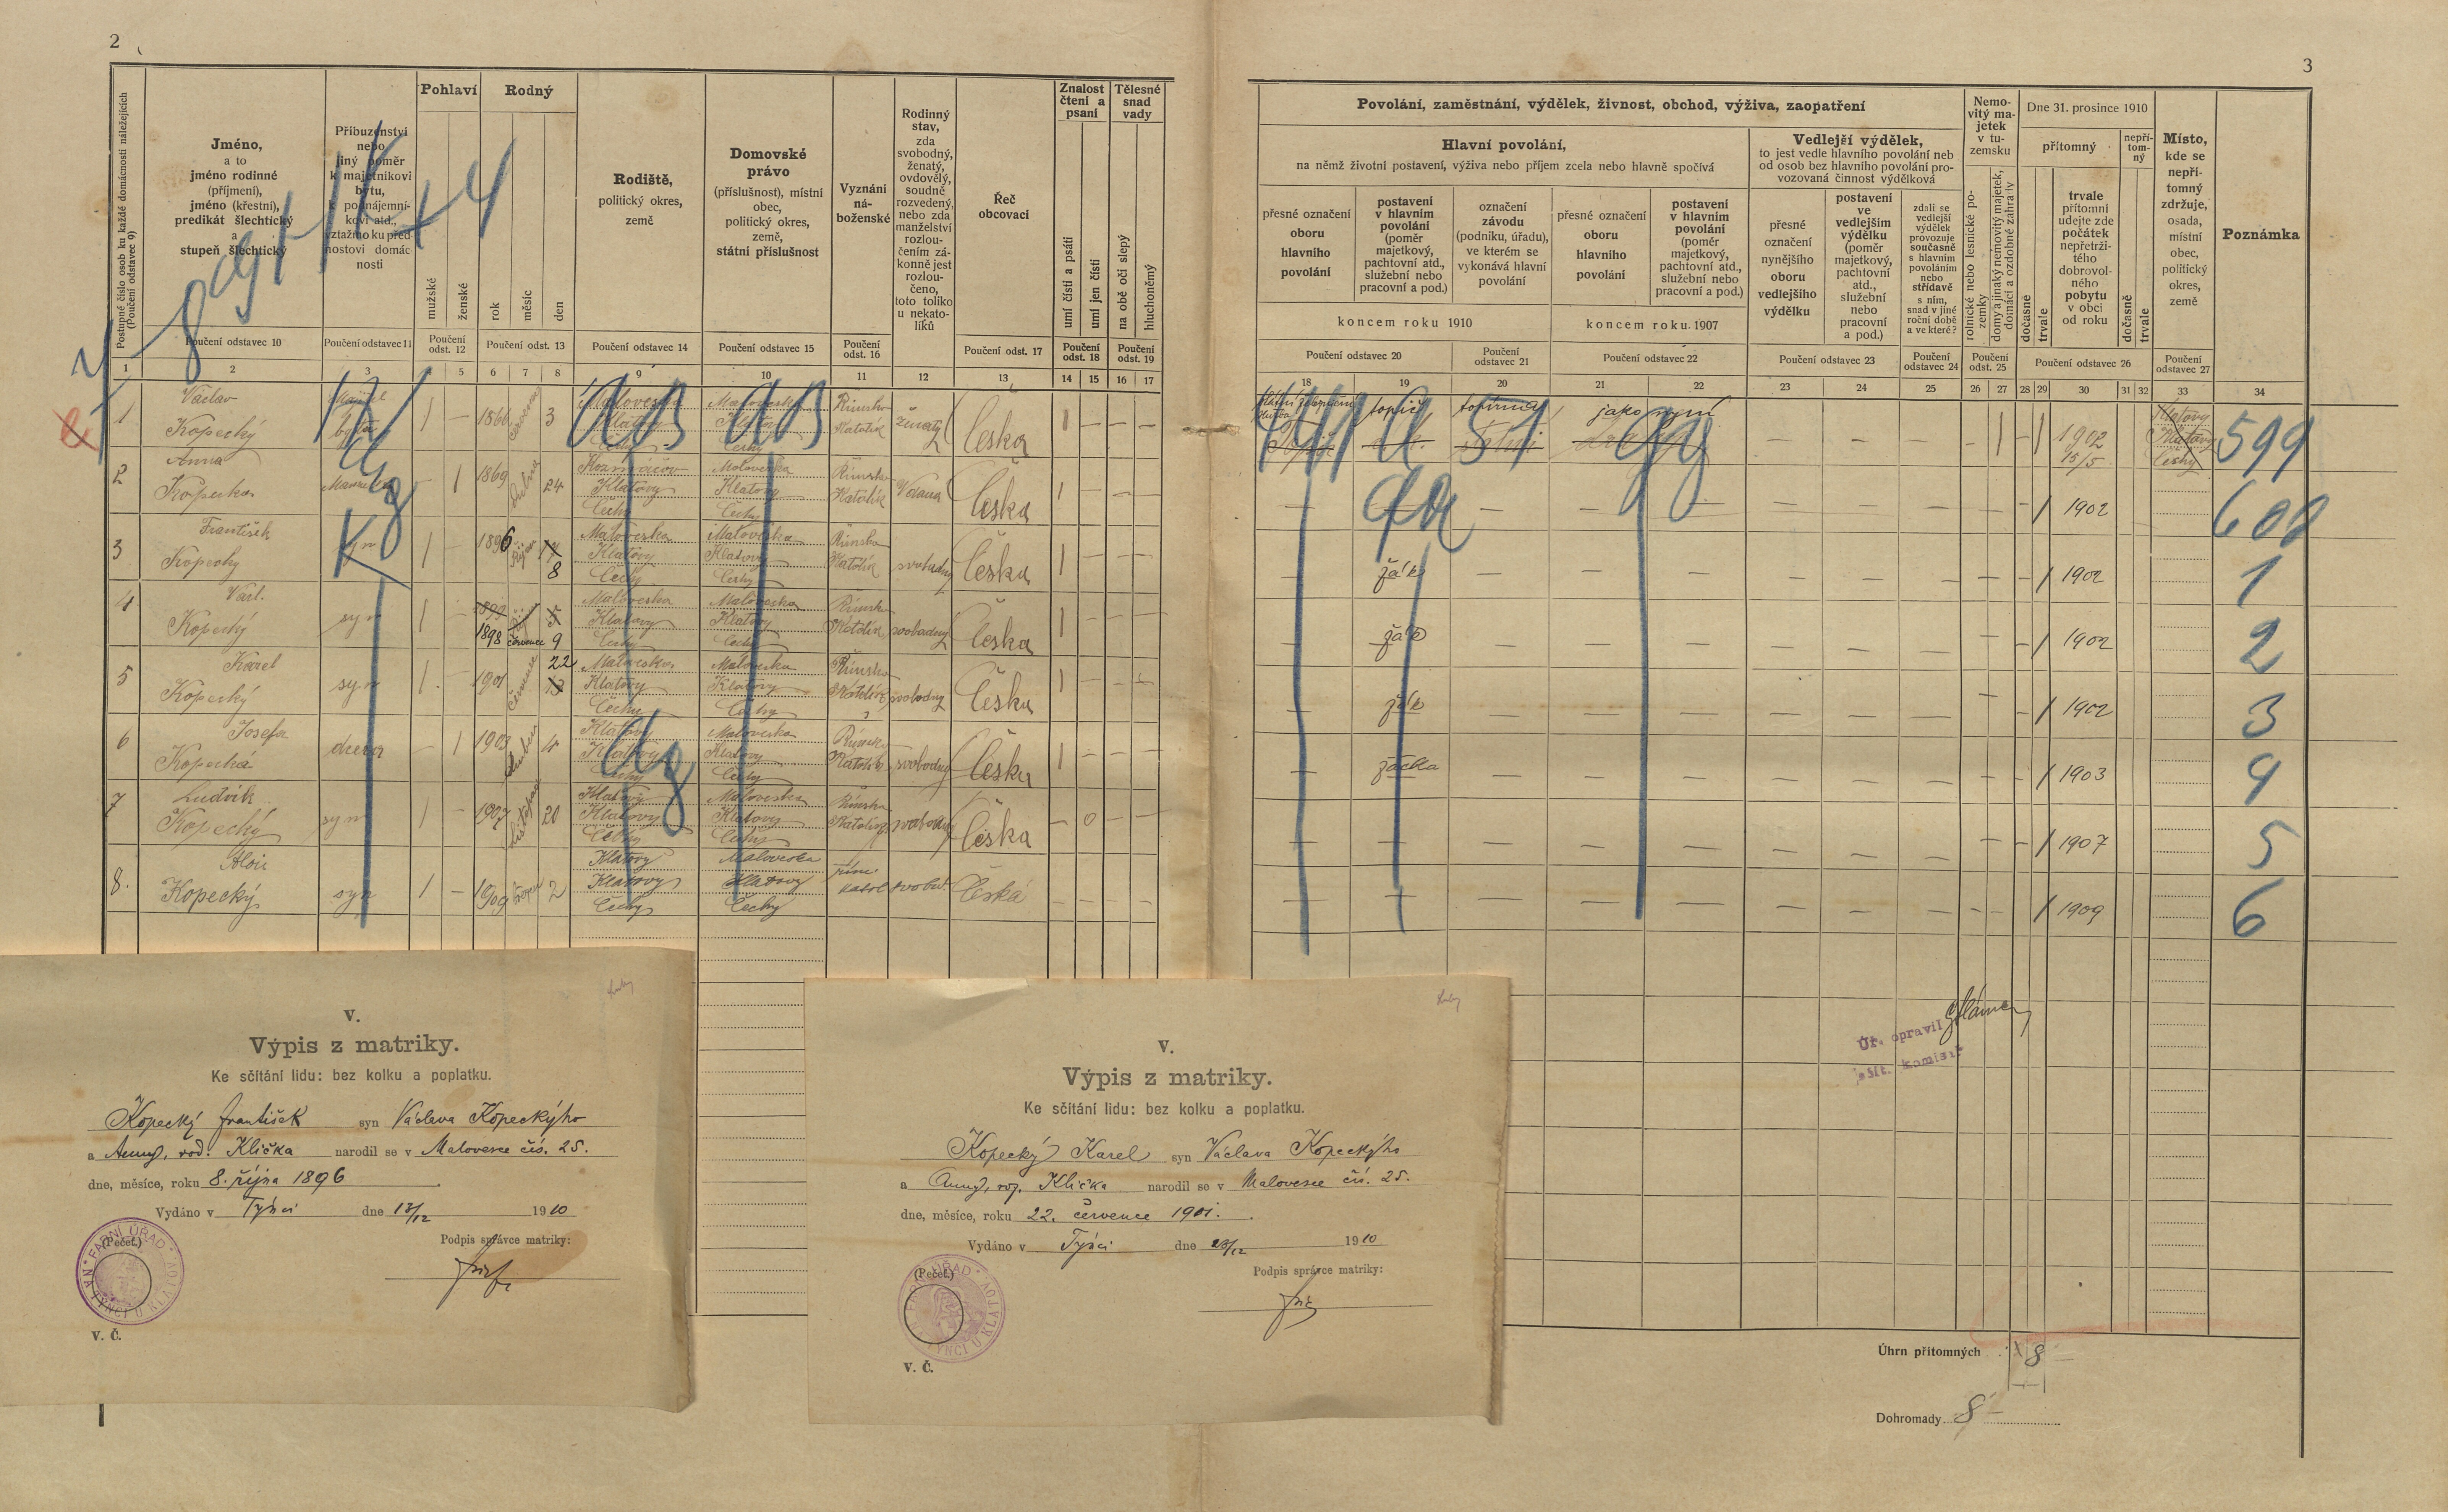 2
3
Postupné číslo osob ku každé domácnosti náležejících
(Poučení odstavec 9)
Jméno,
a to
jméno rodinné
(příjmení),
jméno (křestní),
predikát šlechtický
a
stupeň šlechtický
Příbuzenství
nebo
jiný poměr
k majetníkovi
bytu,
k podnájemní-
kovi atd.,
vztažmo ku před-
nostovi domác-
nosti
Pohlaví
mužské
ženské
Rodný
rok
měsíc
den
Rodiště,
politický okres,
země
Domovské
právo
(příslušnost), místní
obec,
politický okres,
země,
státní příslušnost
Vyznání
ná-
boženské
Rodinný
stav,
zda
svobodný,
ženatý,
ovdovělý,
soudně
rozvedený,
nebo zda
manželství
rozlou-
čením zá-
konně jest
rozlou-
čeno,
toto toliko
u nekato-
líků
Řeč
obcovací
Znalost
čtení a
psaní
umí čísti a psáti
umí jen čísti
Tělesné
snad
vady
na obě oči slepý
hluchoněmý
Poučení odstavec 10
Poučení odstavec 11
Poučení
odst. 12
Poučení odst. 13
Poučení odstavec 14
Poučení odstavec 15
Poučení
odst. 16
Poučení odst. 17
Poučení
odst. 18
Poučení
odst. 19
1 2 3 4 5 6 7 8 9 10 11 12 13 14 15 16 17
Povolání, zaměstnání, výdělek, živnost, obchod, výživa, zaopatření
Hlavní povolání,
na němž životní postavení, výživa nebo příjem zcela nebo hlavně spočívá
přesné označení
oboru
hlavního
povolání
postavení
v hlavním
povolání
(poměr
majetkový,
pachtovní atd.,
služební nebo
pracovní a pod.)
označení
závodu
(podniku, úřadu),
ve kterém se
vykonává hlavní
povolání
přesné označení
oboru
hlavního
povolání
postavení
v hlavním
povolání
(poměr
majetkový,
pachtovní atd.,
služební nebo
pracovní a pod.)
koncem roku 1910
koncem roku 1907
Vedlejší výdělek,
to jest vedle hlavního povolání neb
od osob bez hlavního povolání pro-
vozovaná činnost výdělková
přesné
označení
nynějšího
oboru
vedlejšího
výdělku
postavení
ve
vedlejším
výdělku
(poměr
majetkový,
pachtovní
atd.,
služební
nebo
pracovní
a pod.)
zdali se
vedlejší
výdělek
provozuje
současně
s hlavním
povoláním
nebo
střídavě
s ním,
snad v jiné
roční době
a ve které?
Nemo-
vitý ma-
jetek
v tu-
zemsku
rolnické nebo lesnické po-
zemky
domy a jinaký nemovitý majetek,
domácí a ozdobné zahrady
Dne 31. prosince 1910
přítomný
nepří-
tom-
ný
dočasně
trvale
trvale
přítomní
udejte zde
počátek
nepřetrži-
tého
dobrovol-
ného
pobytu
v obci
od roku
dočasně
trvale
Místo,
kde se
nepří-
tomný
zdržuje,
osada,
místní
obec,
politický
okres,
země
Poznámka
Poučení odstavec 20
Poučení
odstavec 21
Poučení odstavec 22
Poučení odstavec 23
Poučení
odstavec 24
Poučení
odst. 25
Poučení odstavec 26
Poučení
odstavec 27
18 19 20 21 22 23 24 25 26 27 28 29 30 31 32 33 34
1 Václav
Kopecký 1 – 1866 3 Klatovy Čechy Římsko Katolík ženatý Česka 1 – – –
topič topírna jako nyní
1902
15/5
Klatovy
Čechy
599
2 Anna
Kopecka – 1 1869 dubna 24 Klatovy Čechy Římsko Katolík Česka 1902 600
3 František
Kopecky syn 1 – 1896 Říjen 8 Maloveska Klatovy Čechy Římsko Katolík svobodny Česka žák 1902 1
4 Václ.
Kopecký syn 1 – 1898 července 9 Maloveska Klatovy Čechy Římsko Katolík svobodny Česka žák 1902 2
5 Karel
Kopecký syn 1 – 1901 července 22 Maloveska Klatovy Čechy Římsko Katolík svobodny Česka žák 1902 3
6 Josefa
Kopecká dcera – 1 1903 4 Klatovy Klatovy Čechy Maloveska Klatovy Čechy Římsko Katolík svobodny Česka žačka 1903 4
7 Ludvík
Kopecký syn 1 – 1907 Listopad 20 Klatovy Klatovy Čechy Maloveska Klatovy Čechy Římsko Katolík svobodny Česka – 0 – – 1907 5
8. Alois
Kopecký syn 1 – 1909 2 Klatovy Klatovy Čechy Maloveska Klatovy Čechy katol svobod. Česká 1909 6
V.
Výpis z matriky.
Ke sčítání lidu: bez kolku a poplatku.
Kopecký František syn Václava Kopeckýho
a Anny, rod. Klička narodil se v Malovesce čís. 25.
dne, měsíce, roku 8. října 1896
Vydáno v Týnci dne 13/12 1910
(Pečeť.)
FARNÍ ÚŘAD
V TÝNCI U KLATOV
Podpis správce matriky:
V. Č.
V.
Výpis z matriky.
Ke sčítání lidu: bez kolku a poplatku.
Kopecký Karel syn Václava Kopeckýho
a Anny, roz. Klička narodil se v Malovesce čís. 25.
dne, měsíce, roku 22. července 1901.
Vydáno v Týnci dne 28/12 1910
(Pečeť.)
Podpis správce matriky:
V. Č.
Úř. opravil
sčít. komisař
Úhrn přítomných 8
Dohromady 8